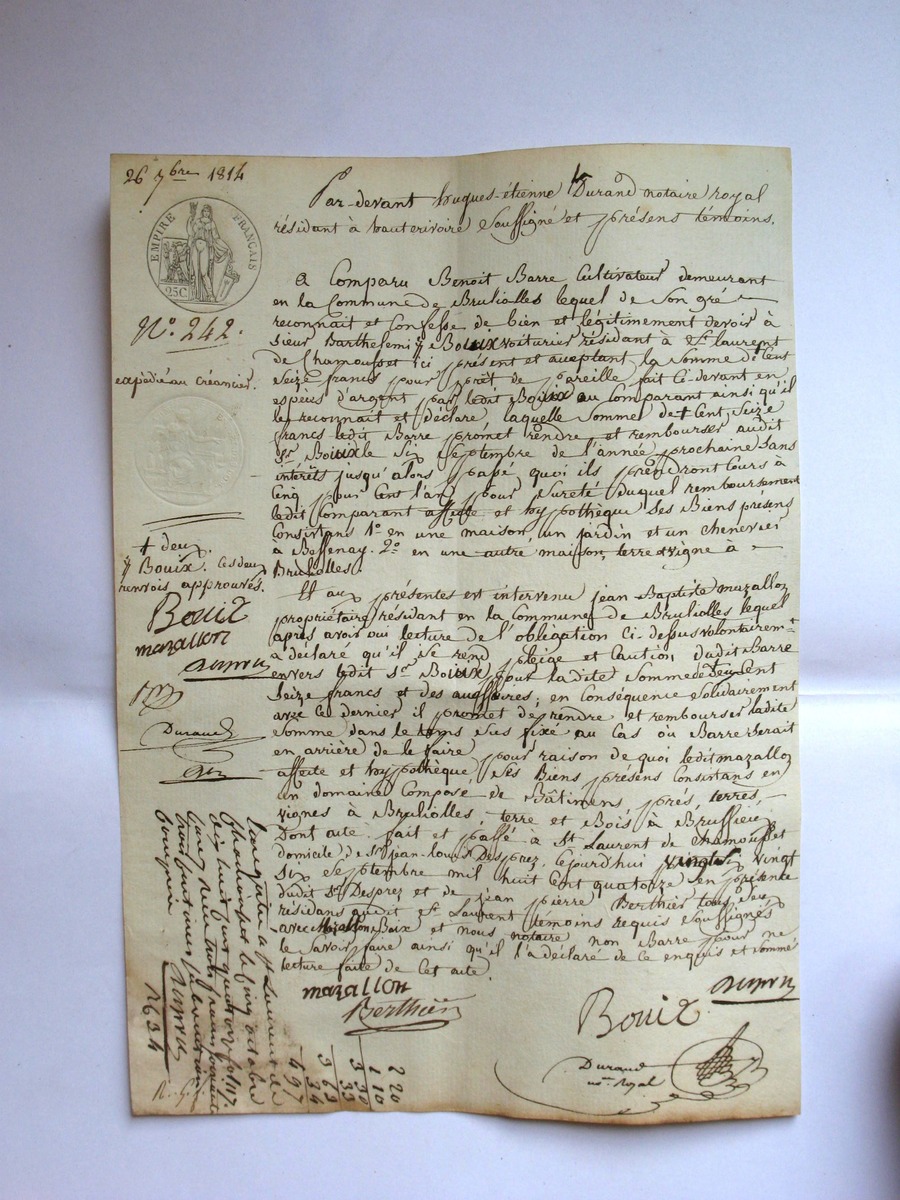 26 7bre 1814
EMPIRE FRANÇAIS
25C.
N°. 242.
expédié au créancier.
Par-devant hugues-étienne Durand notaire royal
résidant à hauterivoire soussigné et présens témoins.
A Comparu Benoit Barre Cultivateur demeurant
en la Commune de Brulliolles lequel de son gré
reconnait et Confesse de bien et légitimement devoir à
sieur Barthelemi Bouix voiturier résidant à St. laurent
de Chamousset ici présent et acceptant la somme de Cent
seize francs pour prêt de pareille fait Ci-devant en
espèces d'argent par ledit Bouix au Comparant ainsi qu'il
le reconnait et déclare laquelle somme de + Cent seize
francs ledit Barre promet rendre et rembourser audit
Sr. Bouix le six septembre de l'année prochaine sans
intérêts jusqu'alors passé quoi ils prendront Cours à
Cinq pour Cent l'an, pour sureté duquel remboursement
ledit Comparant affecte et hypothèque ses Biens présens
Consistans 1° en une maison, un jardin et un chenevier
à Bessenay. 2° en une autre maison, terre et vigne à
Brulliolles.
+ deux.
y Bouix. Ces deux
renvois approuvés.
Bouix
mazallon
Durand
Et aux présentes est intervenu jean Baptiste mazallon
propriétaire résidant en la Commune de Brulliolles lequel
après avoir oui lecture de l'obligation Ci-dessus volontairemt
a déclaré qu'il se rend pleige et Caution dudit Barre
envers ledit Sr. Bouix pour ladite somme de deux Cent
seize francs et des accessoires; en Conséquence solidairement
avec Ce dernier il promet de rendre et rembourser ladite
somme dans le tems sus fixé au Cas où Barre serait
en arrière de le faire
pour raison de quoi ledit mazallon
affecte et hypothèque ses Biens présens Consistans en
un domaine Composé de Bâtimens, prés, terres,
vignes à Brulliolles, terre et Bois à Brussieu
Dont acte. fait et passé à St Laurent de Chamousset
domicile de Sr. jean-louis Desprez, Cejourdhui vingt
six septembre mil huit Cent quatorze en présence
dudit Sr Desprez et de jean pierre Berthier tous deux
résidans audit St Laurent témoins requis soussignés
avec Mazallon Bouix et nous notaire non Barre pour ne
le savoir faire ainsi qu'il l'a déclaré de Ce enquis et sommé
lecture faite de Cet acte.
mazallon
Berthier
Bouix
Durand
nre. Royal
Enregistré à St Laurent de
Chamousset le cinq octobre
220
110
330
33
363
34
497